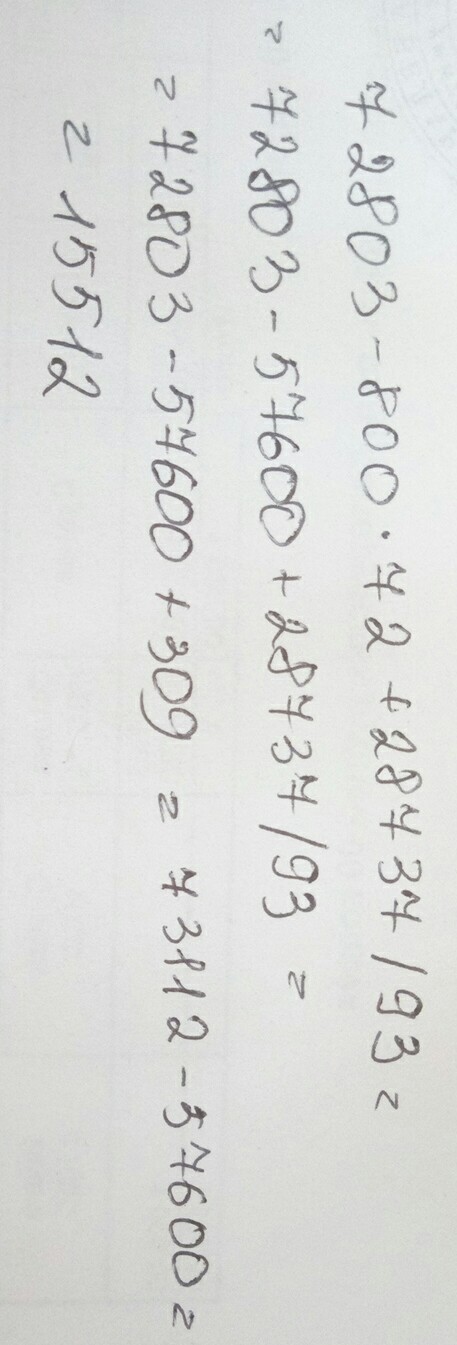 72803-800·72+28737/93=
=72803-57600+28737/93=
=72803-57600+309=73112-57600=
=15512